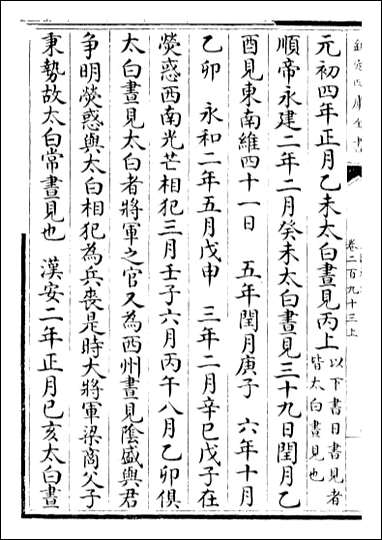 欽定四庫全書
卷二百九十三上
元初四年正月乙未太白晝見丙上以下書日書見者
皆太白晝見也
順帝永建二年二月癸未太白晝見三十九日閏月乙
酉見東南維四十一日　五年閏月庚子　六年十月
乙卯　永和二年五月戊申　三年二月辛巳戊子在
熒惑西南光芒相犯三月壬子六月丙午八月乙卯俱
太白晝見太白者將軍之官又為西州晝見陰盛與君
爭明熒惑與太白相犯為兵喪是時大將軍梁商父子
秉勢故太白常晝見也　漢安二年正月己亥太白晝